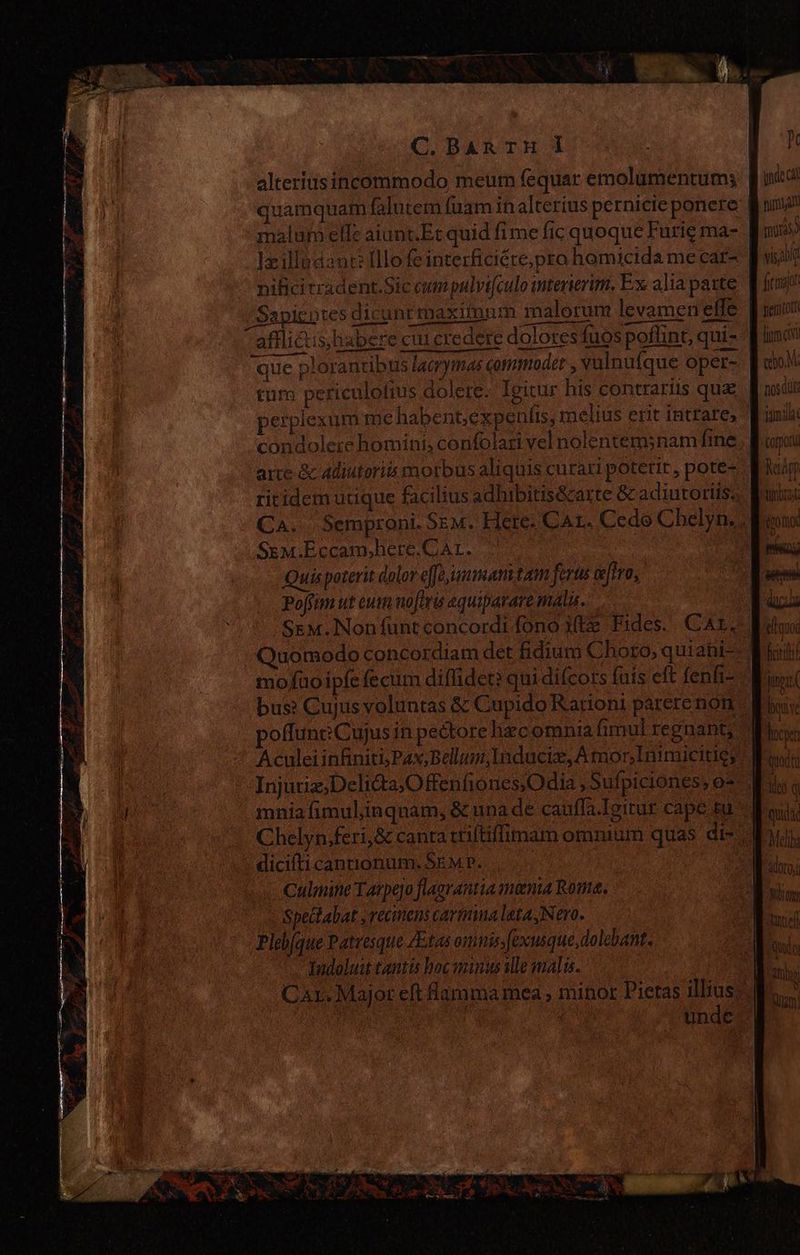 C. BARTH I
alterius incommodo meum ſequar emolumentum;
quamquam ſalutem ſuam in alterius pernicie ponere
malum eſſe aiunt. Et quid ſi me ſic quoque Furię ma-
læ illudant? Illo ſe interficiẽte, pro homicida me car-
nifici tradent. Sic cum pulviſculo interierim. Ex alia parte
Sapientes dicunt maximum malorum levamen eſſe
afflictis, habere cui credere dolores ſuos poſſint, qui-
que plorantibus lacrymas commodet, vulnuſque oper-
tum periculoſius dolere. Igitur his contrariis quæ
perplexum me habent, expenſis, melius erit intrare,
condolere homini, conſolari vel nolentem; nam ſine
arte & adiutoriis morbus aliquis curari poterit, pote-
rit idem utique facilius adhibitis & arte & adiutoriis.
CA. Semproni. SEM. Here. CAL. Cedo Chelyn.
SEM. Eccam, here. CAL.
Quis poterit dolor eſſe, immani tam ferus œſtro,
Poſſim ut eum noſtris æquiparare malis.
SEM. Non ſunt concordi ſono iſtæ Fides. CAL.
Quomodo concordiam det fidium Choro, qui ani-
mo ſuo ipſe ſecum diſſidet? qui diſcors ſuis eſt ſenſi-
bus? Cujus voluntas & Cupido Rationi parere non
poſſunt? Cujus in pectore hæc omnia ſimul regnant,
Aculei infiniti, Pax, Bellum, Induciæ, Amor, Inimicitię,
Injuriæ, Delicta, Offenſiones, Odia, Suſpiciones, o-
mnia ſimul, inquam, & una de cauſſa. Igitur cape tu
Chelyn, feri, & canta triſtiſſimam omnium quas di-
diciſti cantionum. SEMP.
Culmine Tarpejo flagrantia mœnia Romæ
Spectabat, recinens carmina læta, Nero.
Plebſque Patresque Ætas omnis, ſexusque, dolebant.
Indoluit tantis hoc minus ille malis.
CAL. Major eſt flamma mea, minor Pietas illius,
unde